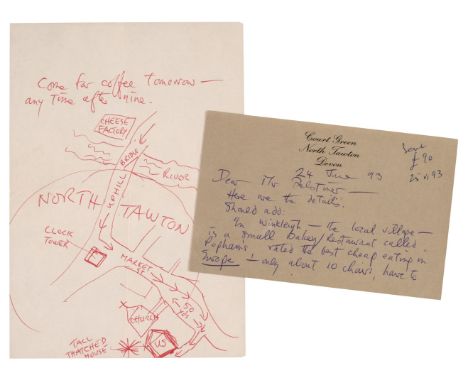 Come for coffee tomorrow —
any time after nine.
CHEESE
FACTORY
BRIDGE
RIVER
UPHILL
NORTH
TAWTON
CLOCK
TOWER
MARKET
ST.
50
YDS
CHURCH
US
TALL
THATCHED
HOUSE
Court Green
North Tawton
Devon
Sent
£90
25 vi 93
24 June 93
Dear Mr
Here are the details.
Should add:
In Winkleigh — the local village —
is a small Bakery/Restaurant called
Pophams rated the best cheap eating in
Europe — only about 10 chairs, have to